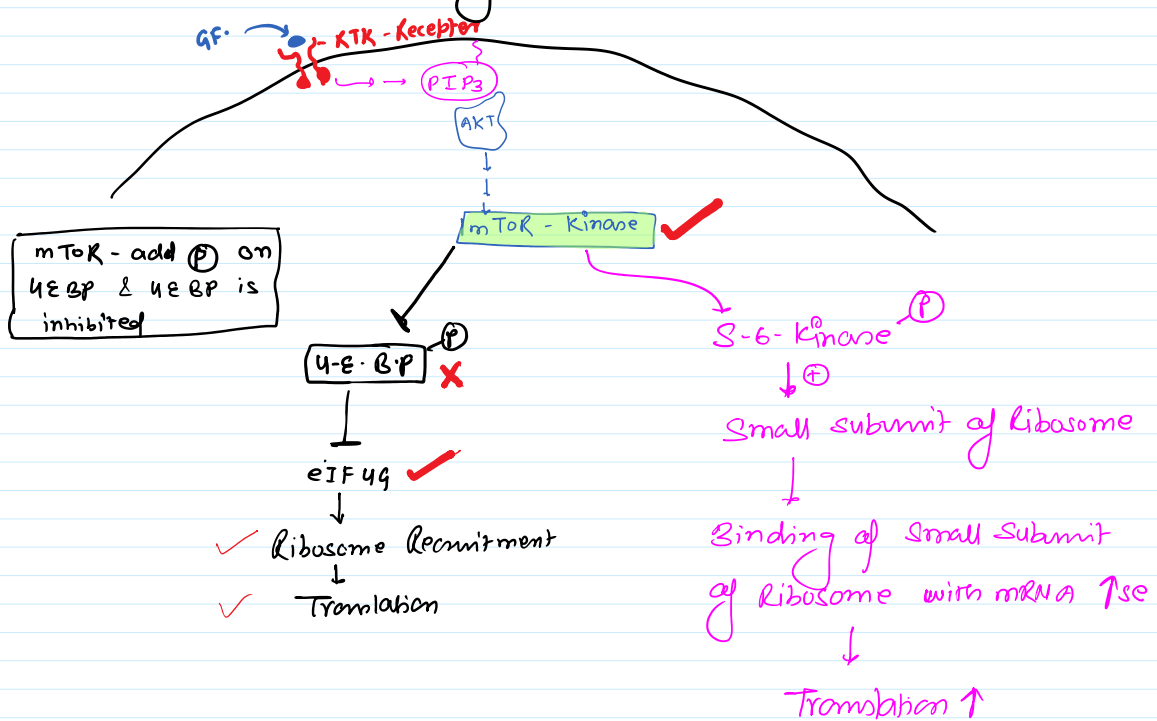 GF.
RTK-Receptor
PIP3
AKT
mTOR - Kinase
mTOR - add P on
4EBP & 4EBP is
inhibited
4-E.B.P
P
eIF4G
Ribosome Recruitment
Translation
S-6-Kinase
P
+
Small subunit of Ribosome
Binding of small subunit
of Ribosome with mRNA ↑se
Translation ↑